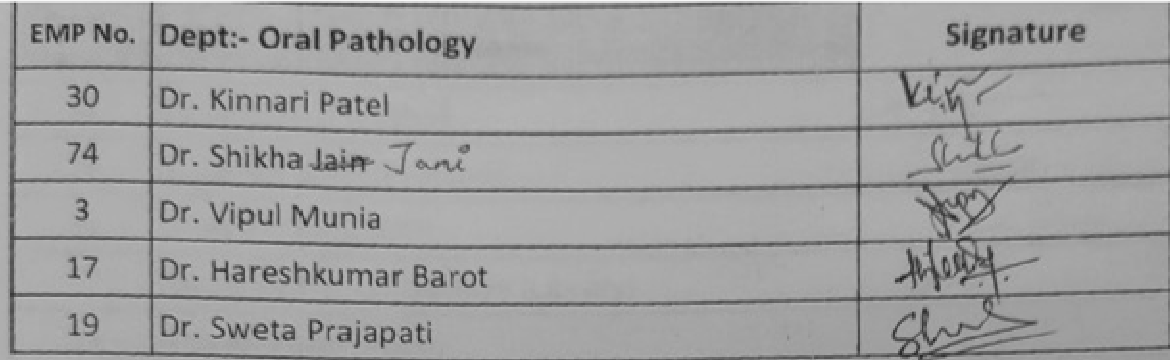 EMP No. Dept:- Oral Pathology Signature
30 Dr. Kinnari Patel
74 Dr. Shikha Jain Jani
3 Dr. Vipul Munia
17 Dr. Hareshkumar Barot
19 Dr. Sweta Prajapati